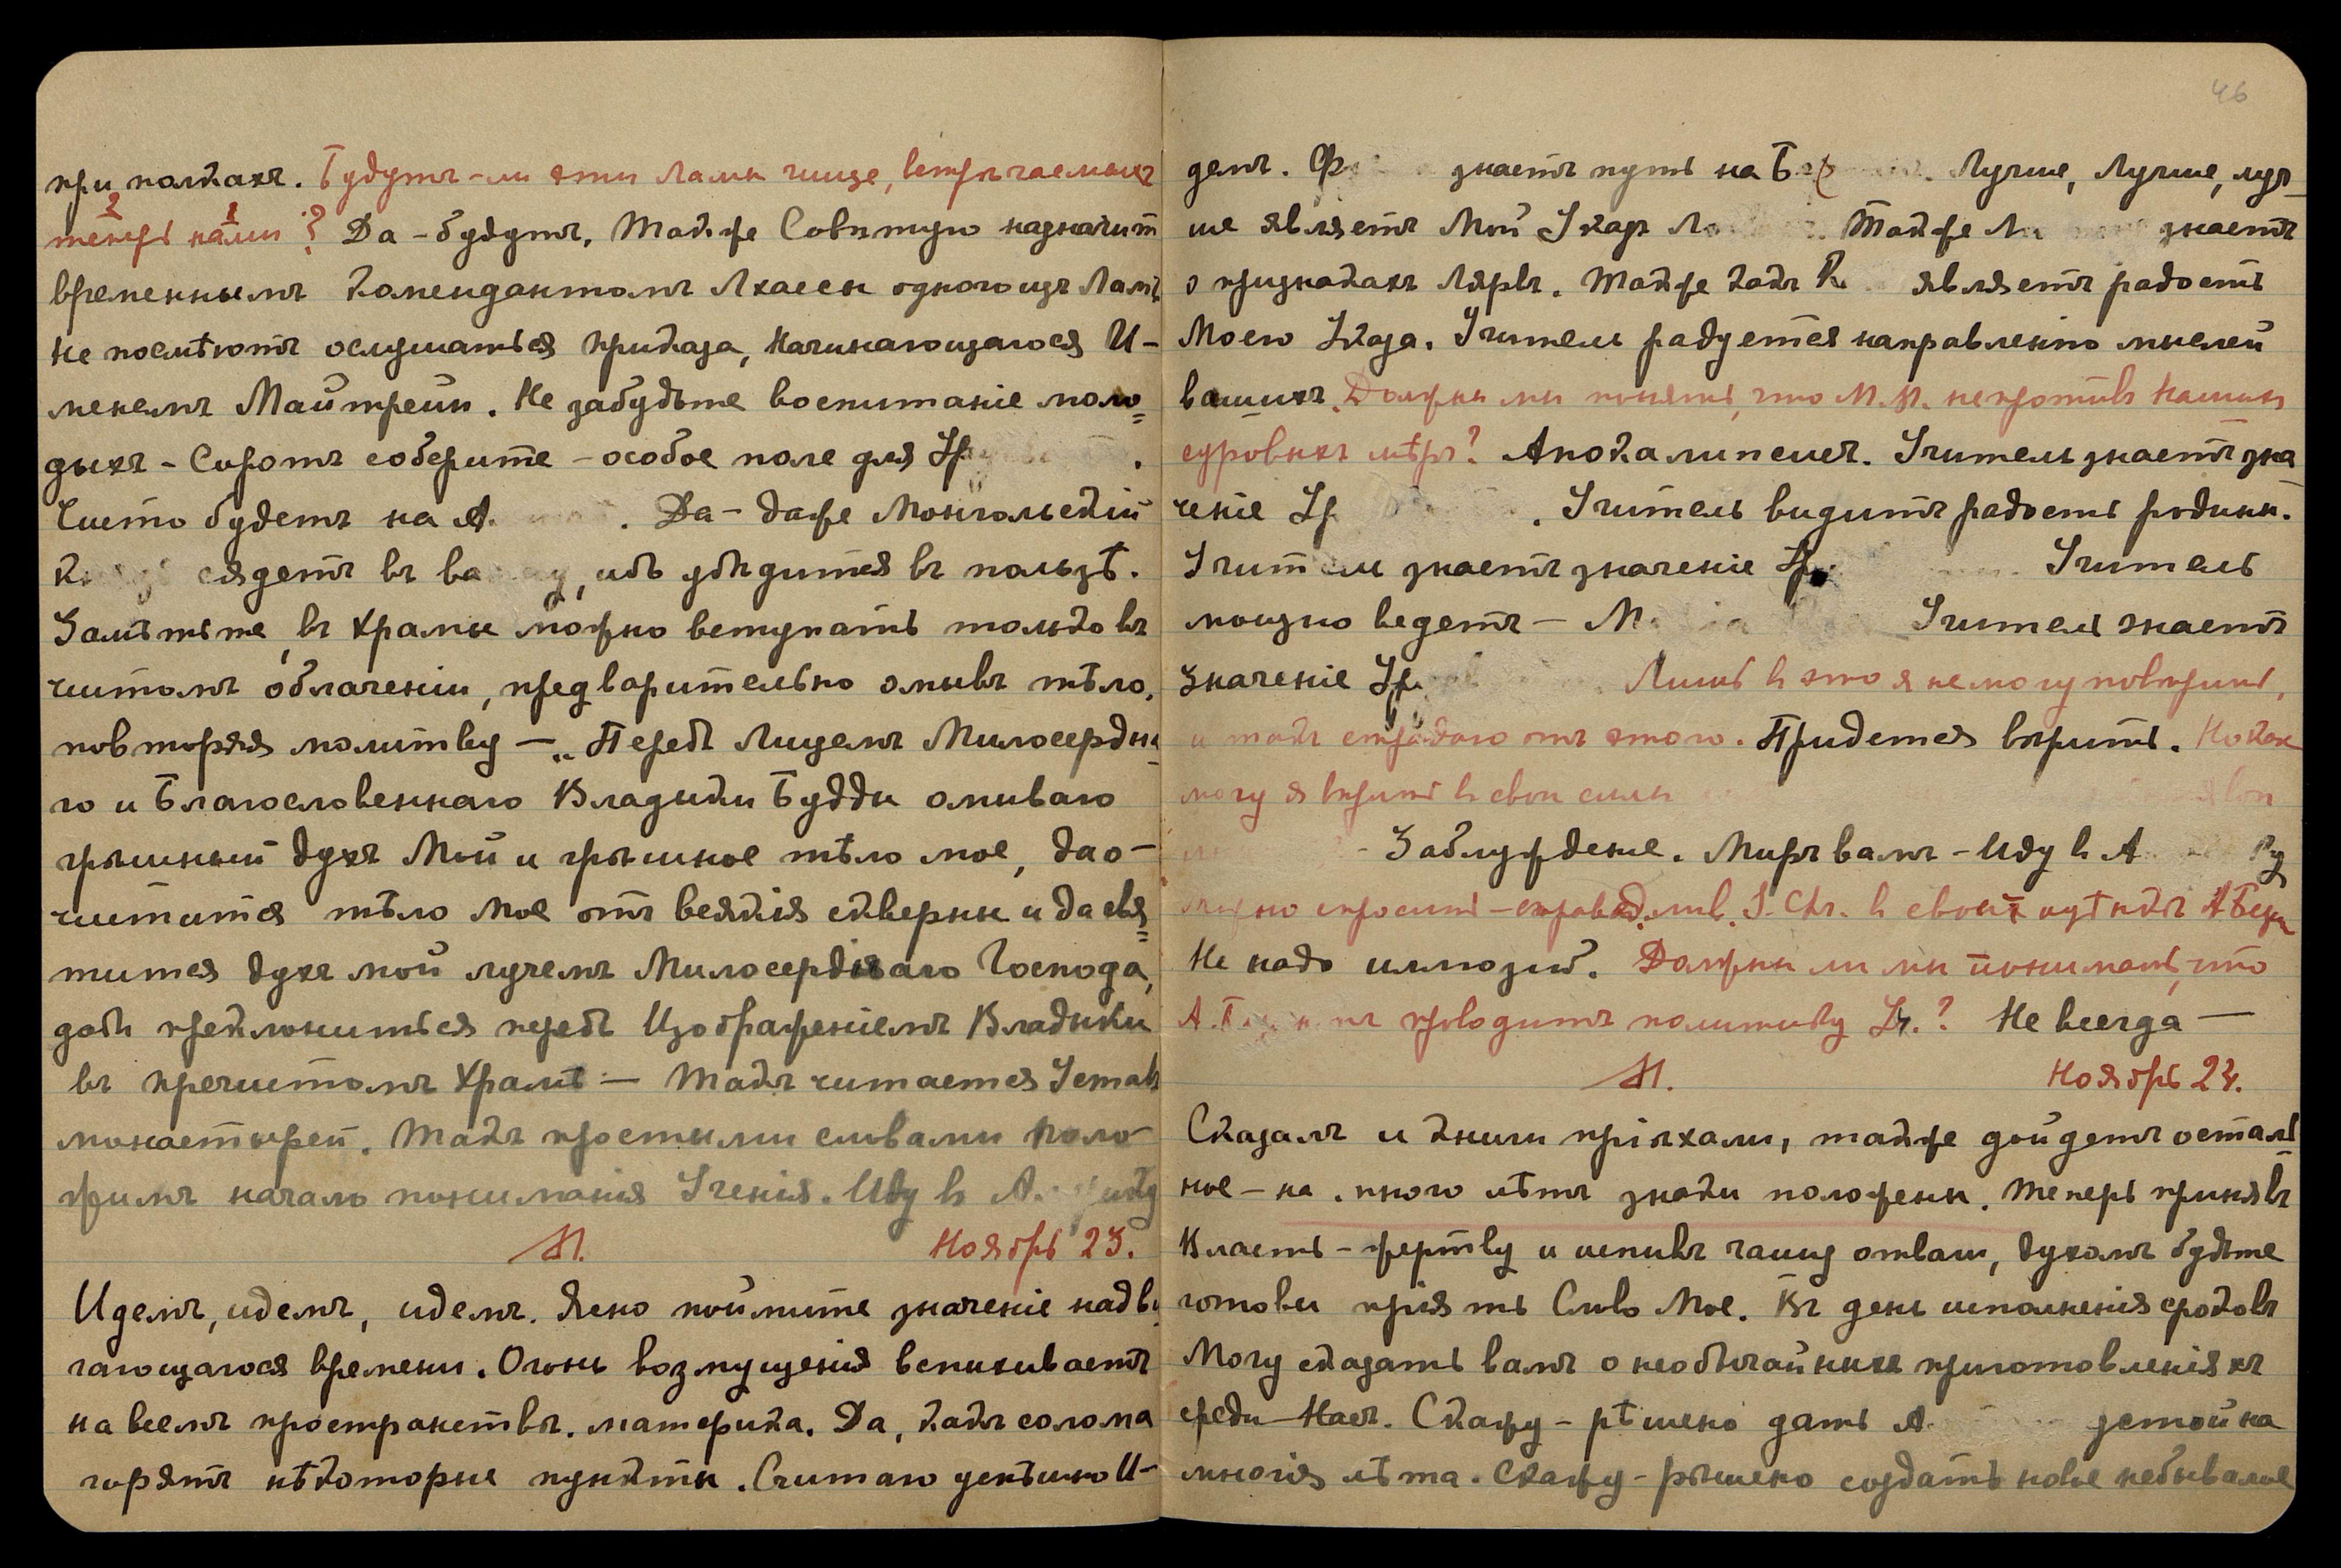 при полкахъ. Будутъ-ли эти Ламы чище, встрѣчаемыхъ
2 1
теперь нами? Да – будутъ. Также Совѣтую назначит
временнымъ комендантомъ Лхассы одного изъ Ламъ
Не посмѣютъ ослушаться приказа, Начинающагося И-
менемъ Майтрейи. Не забудьте воспитаніе моло=
дыхъ – Сиротъ соберите – особое поле для Ур
Чисто будетъ на А. . Да – даже Монгольскій
К сядетъ въ ва у, ибо убѣдится въ пользѣ.
Замѣтьте, въ храмы можно вступать только въ
чистомъ облаченіи, предварительно омывъ тѣло,
повторяя молитву – „Передъ Лицемъ Милосердна-
го и Благословеннаго Владыки Будды омываю
грѣшный духъ Мой и грѣшное тѣло мое, да о-
чистится тѣло мое отъ всякія скверны и да свя=
тится духъ мой лучемъ Милосерднаго Господа,
дабы преклониться передъ Изображеніемъ Владыки
въ пречистомъ Храмѣ – Такъ читается Уставъ
монастырей. Такъ простыми словами поло-
жимъ начало пониманія Ученія. Иду въ А.
М. Ноябрь 23.
Идемъ, идемъ, идемъ. Ясно поймите значеніе надви
гающагося времени. Огонь возмущенія вспыхиваетъ
на всемъ пространствѣ материка. Да, какъ солома
горятъ нѣкоторые пункты. Считаю успѣшно И-
46
детъ. Ф знаетъ путь на Б . Лучше, Лучше, луч-
ше являетъ Мой Указъ Ло . Также Ло знаетъ
о признакахъ Лярвъ. Также какъ К являетъ радость
Моего Указа. Учитель радуется направленію мыслей
вашихъ. Должны мы понять, что М.М. не противъ Нашихъ
суровыхъ мѣръ? Апокалипсисъ. Учитель знаетъ зна
ченіе Ур . Учитель видитъ радость родины.
Учитель знаетъ значеніе Ур Учитель
мощно ведетъ – М Учитель знаетъ
значеніе Ур . Лишь въ это я не могу повѣрить,
и такъ страдаю отъ этого. Придется вѣрить. Но как
могу я вѣрить въ свои силы
Заблужденіе. Миръ вамъ – Иду въ А
Можно спросить – справедлив. въ А
Не надо иллюзій. Должны ли мы понимать, что
А. проводитъ политику Уч.? Не всегда –
М. Ноябрь 24.
Сказалъ и книги пріѣхали, также дойдетъ осталь-
ное – на много лѣтъ знаки положены. Теперь принявъ
Власть – жертву и испивъ чашу отваги, духомъ будьте
готовы пріять Слово Мое. Въ день исполненія сроковъ
Могу сказать вамъ о необычайныхъ приготовленіяхъ
среди Насъ. Скажу – рѣшено дать А устои на
многія лѣта. Скажу – рѣшено создать новое небывалое